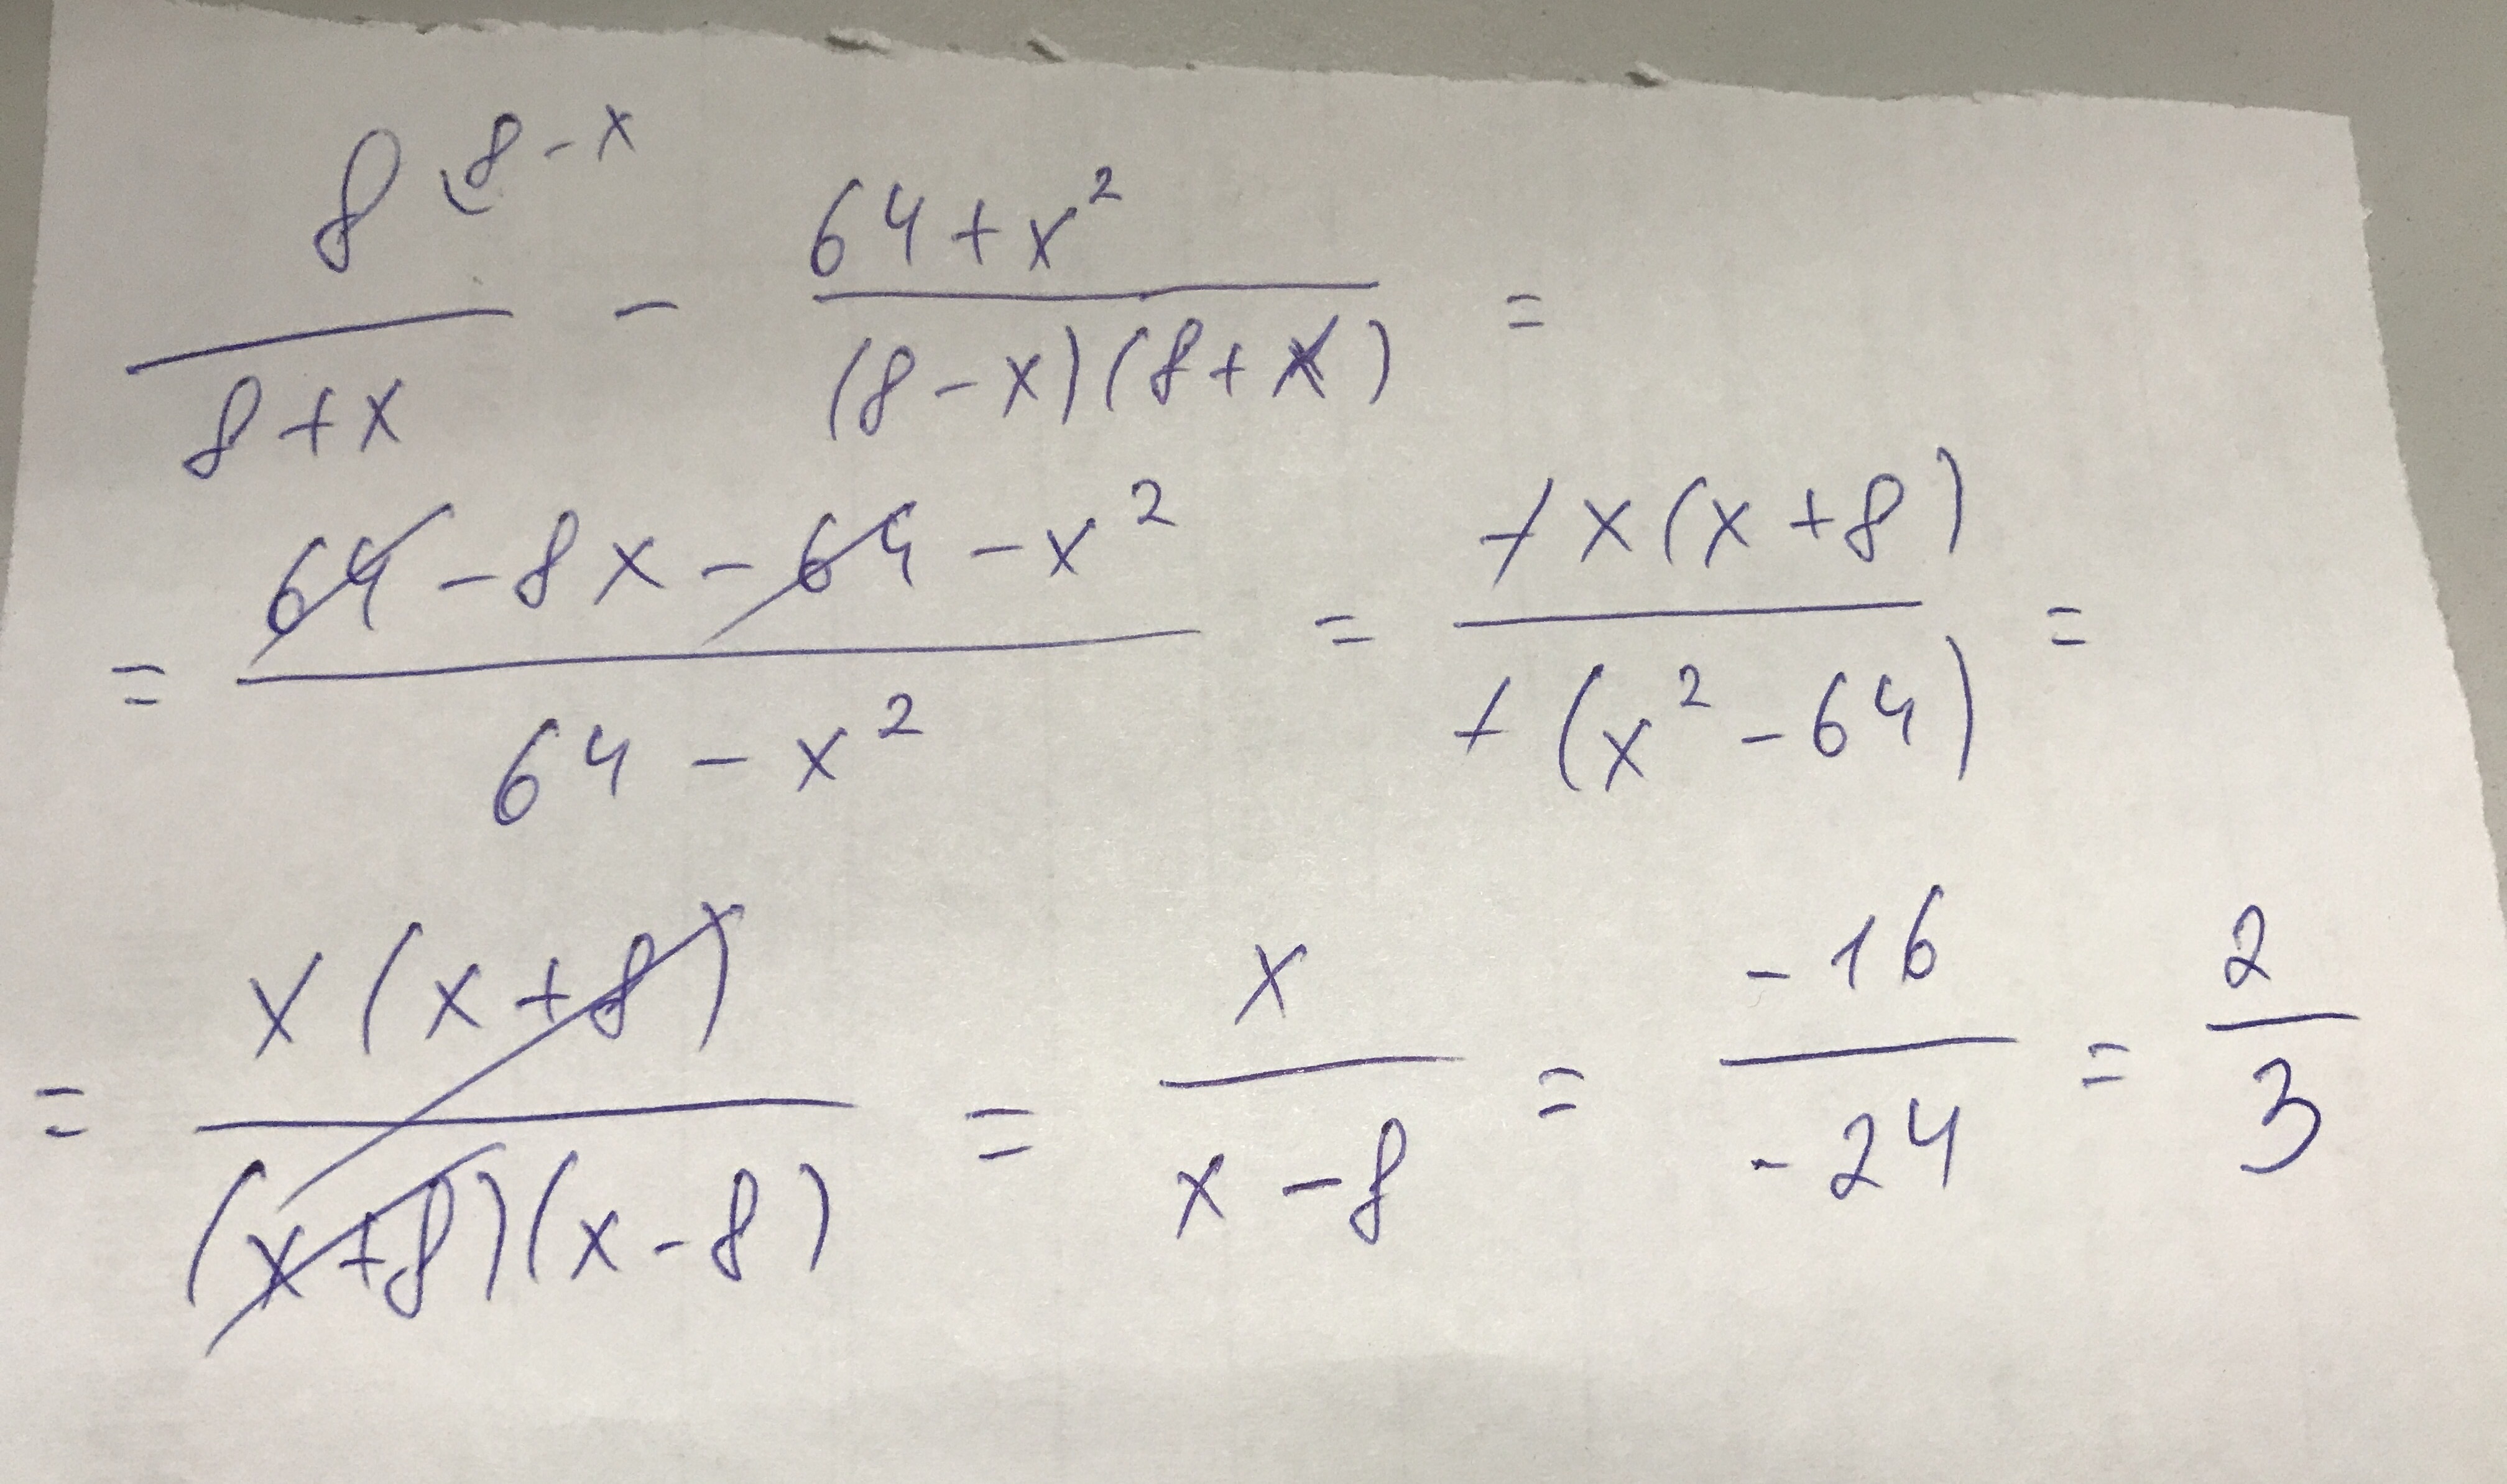 8 (8-x / 8+x - 64+x² / (8-x)(8+x) =
= 64-8x-64-x² / 64-x² = -x(x+8) / -(x²-64) =
= x(x+8) / (x+8)(x-8) = x / x-8 = -16 / -24 = 2 / 3